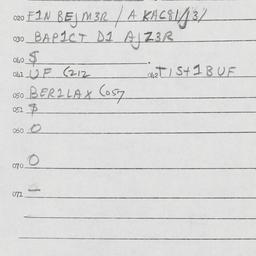 020 F1N BEJM3R / A KAC81/J3/
030 BAP1CT D1 AJZ3R
040 $
041 UF C212 042 T1S+1BUF
050 BER2LAX C057
052 $
060 O
070 O
072 –